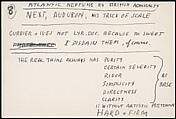 8
ATLANTIC NEPTUNE BY BRITISH ADMIRALTY
NEXT, AUDUBON, HIS TRICK OF SCALE
CURRIER + IVES NOT LYR. DOC. BECAUSE TO SWEET
I DISDAIN THEM, OF COURSE.
THE REAL THING ALWAYS HAS PURITY
CERTAIN SEVERITY
RIGOR
SIMPLICITY
DIRECTNESS
CLARITY
AT BASE
IS WITHOUT ARTISTIC PRETENSION
HARD + FIRM